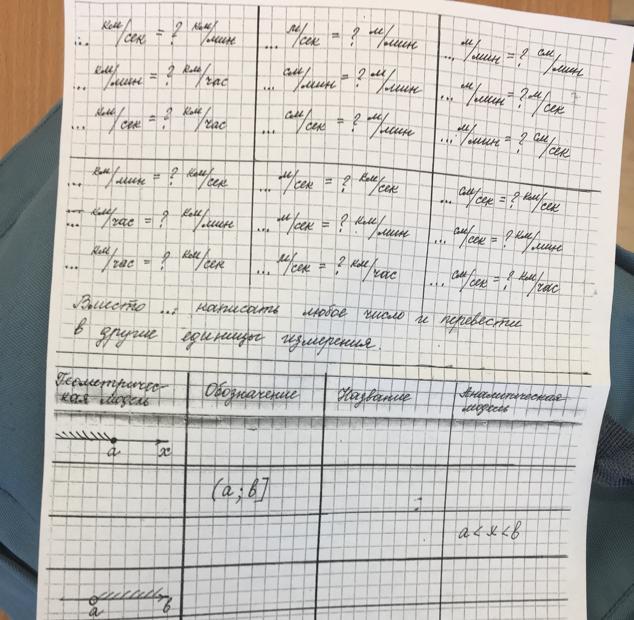 ... км/сек = ? км/мин
... км/мин = ? км/час
... км/сек = ? км/час
... м/сек = ? м/мин
... см/мин = ? м/мин
... см/сек = ? м/мин
... м/мин = ? см/мин
... м/мин = ? м/сек
... м/мин = ? см/сек
... км/мин = ? км/сек
... км/час = ? км/мин
... км/час = ? км/сек
... м/сек = ? км/сек
... м/сек = ? км/мин
... м/сек = ? км/час
... см/сек = ? км/сек
... см/сек = ? км/мин
... см/сек = ? км/час
Вместо ... написать любое число и перевести
в другие единицы измерения.
Геометричес-
кая модель
Обозначение
Название
Аналитическая
модель
a x
(a; в]
a < x < в
a в